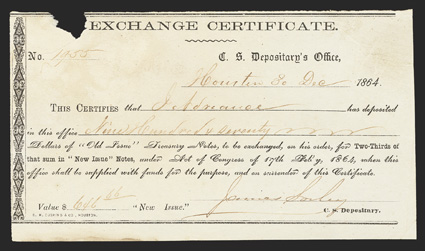 EXCHANGE CERTIFICATE.
No. 1255
C. S. Depositary's Office,
Houston 30 Dec 1864.
THIS CERTIFIES that J. Advance has deposited
in this office Nine Hundred & seventy
Dollars of "Old Issue" Treasury Notes, to be exchanged, on his order, for Two-Thirds of
that sum in "New Issue" Notes, under Act of Congress of 17th Feb'y, 1864, when this
office shall be supplied with funds for the purpose, and on surrender of this Certificate.
Value $ 646 66 "New Issue." James Sorley
C. S. Depositary.
HOUSTON.